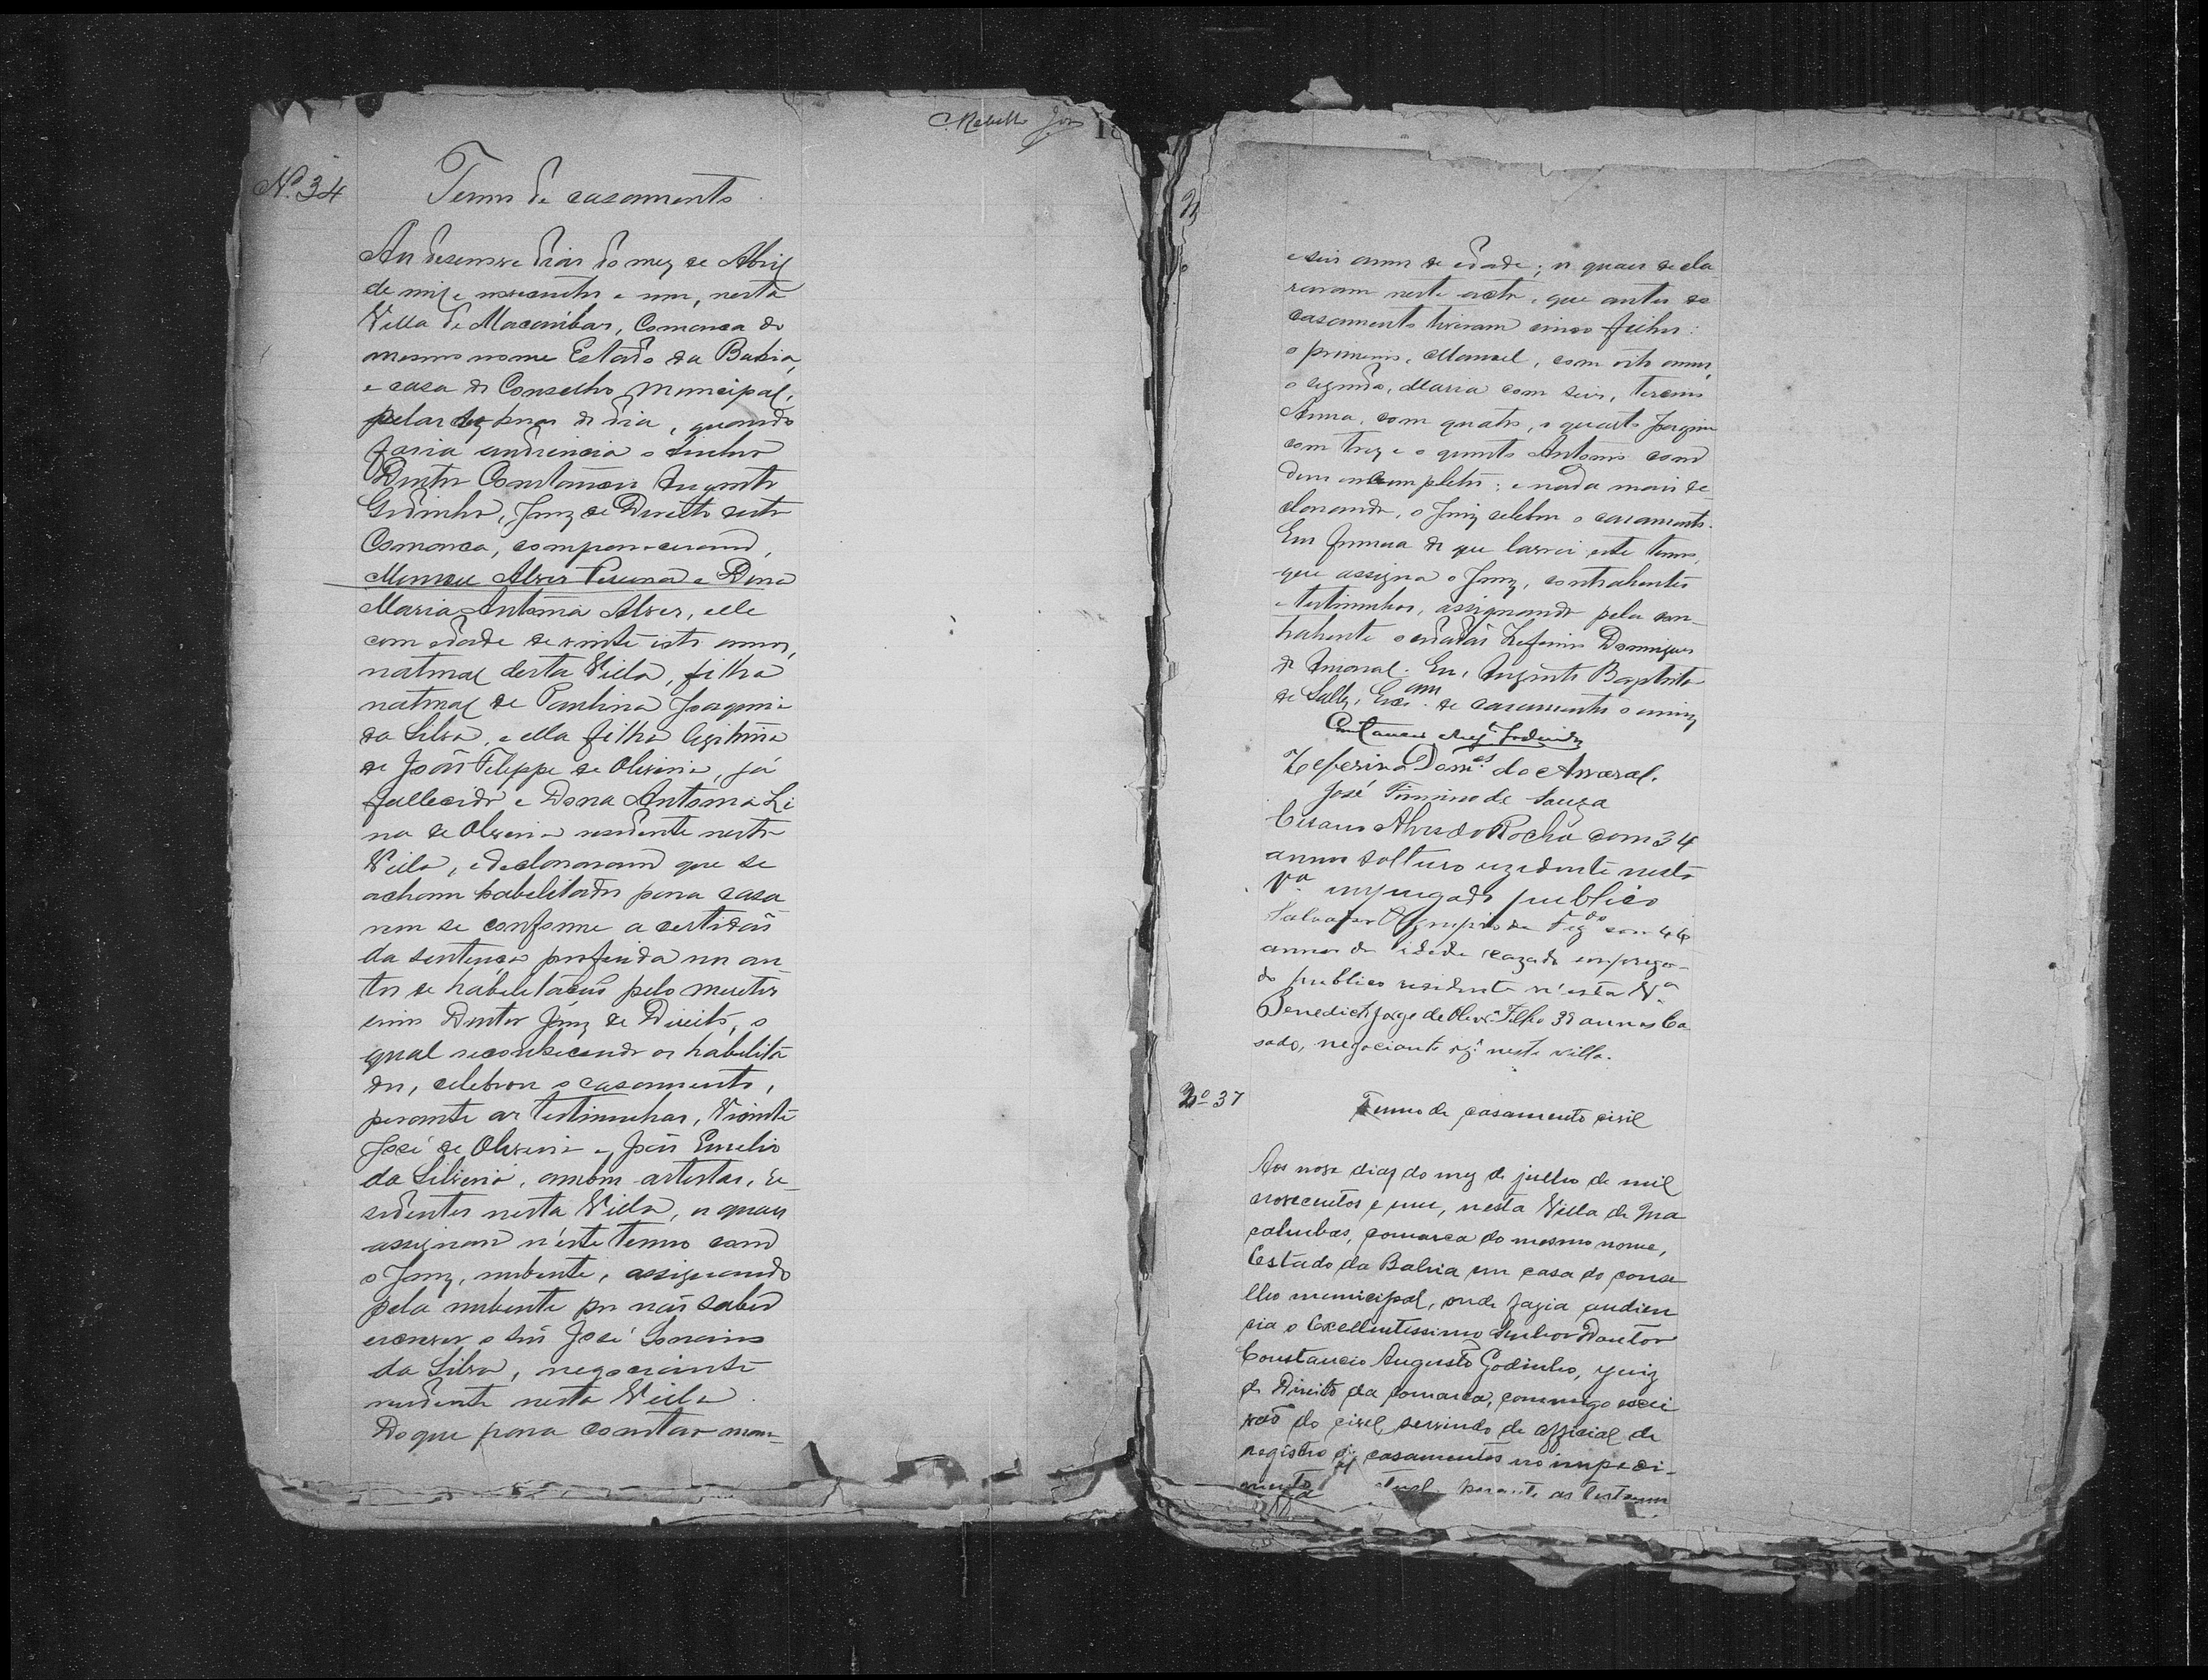 Nº 34
Termo de casamento
Aos desenove dias do mez de Abril
de mil e novecentos e um, nesta
Villa de Macaubas, Comarca do
mesmo nome Estado da Bahia,
e casa do Conselho Municipal,
pelas dez horas do dia, quando
fasia audiencia o Senhor
Doutor Constancio Augusto
Godinho, Juiz de Direito desta
Comarca, compareceram,
Manoel Alves e Dona
Maria Antonia Alves, elle
com edade de vinte oito annos,
natural desta Villa, filho
natural de Paulina Joaquina
da Silva, e ella filha legitima
de João Felippe de Oliveira, já
fallecido e Dona Antonia Li
na de Oliveira residente nesta
Villa, e declararam que se
acham habelitados para casa
rem se conforme a certidão
da sentença proferida nos au
tos de habelitação pelo meretis
simo Doutor Juiz de Direito, o
qual reconhecendo os habelita
dos, celebrou o casamento,
perante as testimunhas, Vicente
José de Oliveira e João Emelio
da Silveira, ambos artistas, re
sidentes nesta Villa, os quaes
assignam n'este termo com
o Juiz, nubente, assignando
pela nubente por não saber
escrever o José
da Silva, negociante
residente nesta Villa.
Do que para constar
e seis annos de edade; os quaes decla
raram neste acto, que antes do
casamento tiveram cinco filhos:
o primeiro, Manoel, com oito annos,
o segundo, Maria com seis, terceiro
Anna, com quatro, o quarto Joaquim
com trez e o quinto Antonio com
dous incompletos; e nada mais de
clarando, o Juiz celebrou o casamento.
Em firmesa do que lavrei este termo,
que assigna o Juiz, contrahentes
e testimunhas, assignando pela con
trahente o cidadão Zeferino Domingues
do Amaral. Eu, Augusto Baptista
de Salles, Escam. de casamentos o
Zeferino Domes. do Amaral.
José Firmino de Souza
Cesario Alves da Rocha com 34
annos solteiro rezidente nesta
Vª. impregado publico
Salvador Olympio de com 46
annos de idade cazado emprega-
do publico residente n'esta Vª
Benedicto Jorge de Olivrª Filho 39 annos Ca
sado, negociante neste villa.
Nº 37
Termo de casamento civil
Aos nove dias do mez de julho de mil
novecentos e um, nesta Villa de Ma
cahubas, comarca do mesmo nome,
Estado da Bahia em casa do conse
lho municipal, onde fazia audien
cia o Excellentissimo Senhor Doutor
Constancio Augusto Godinho, Juiz
de Direito da comarca, commigo escri
vão do civel servindo de official de
registro de casamentos no impedi-
mento perante as testemu